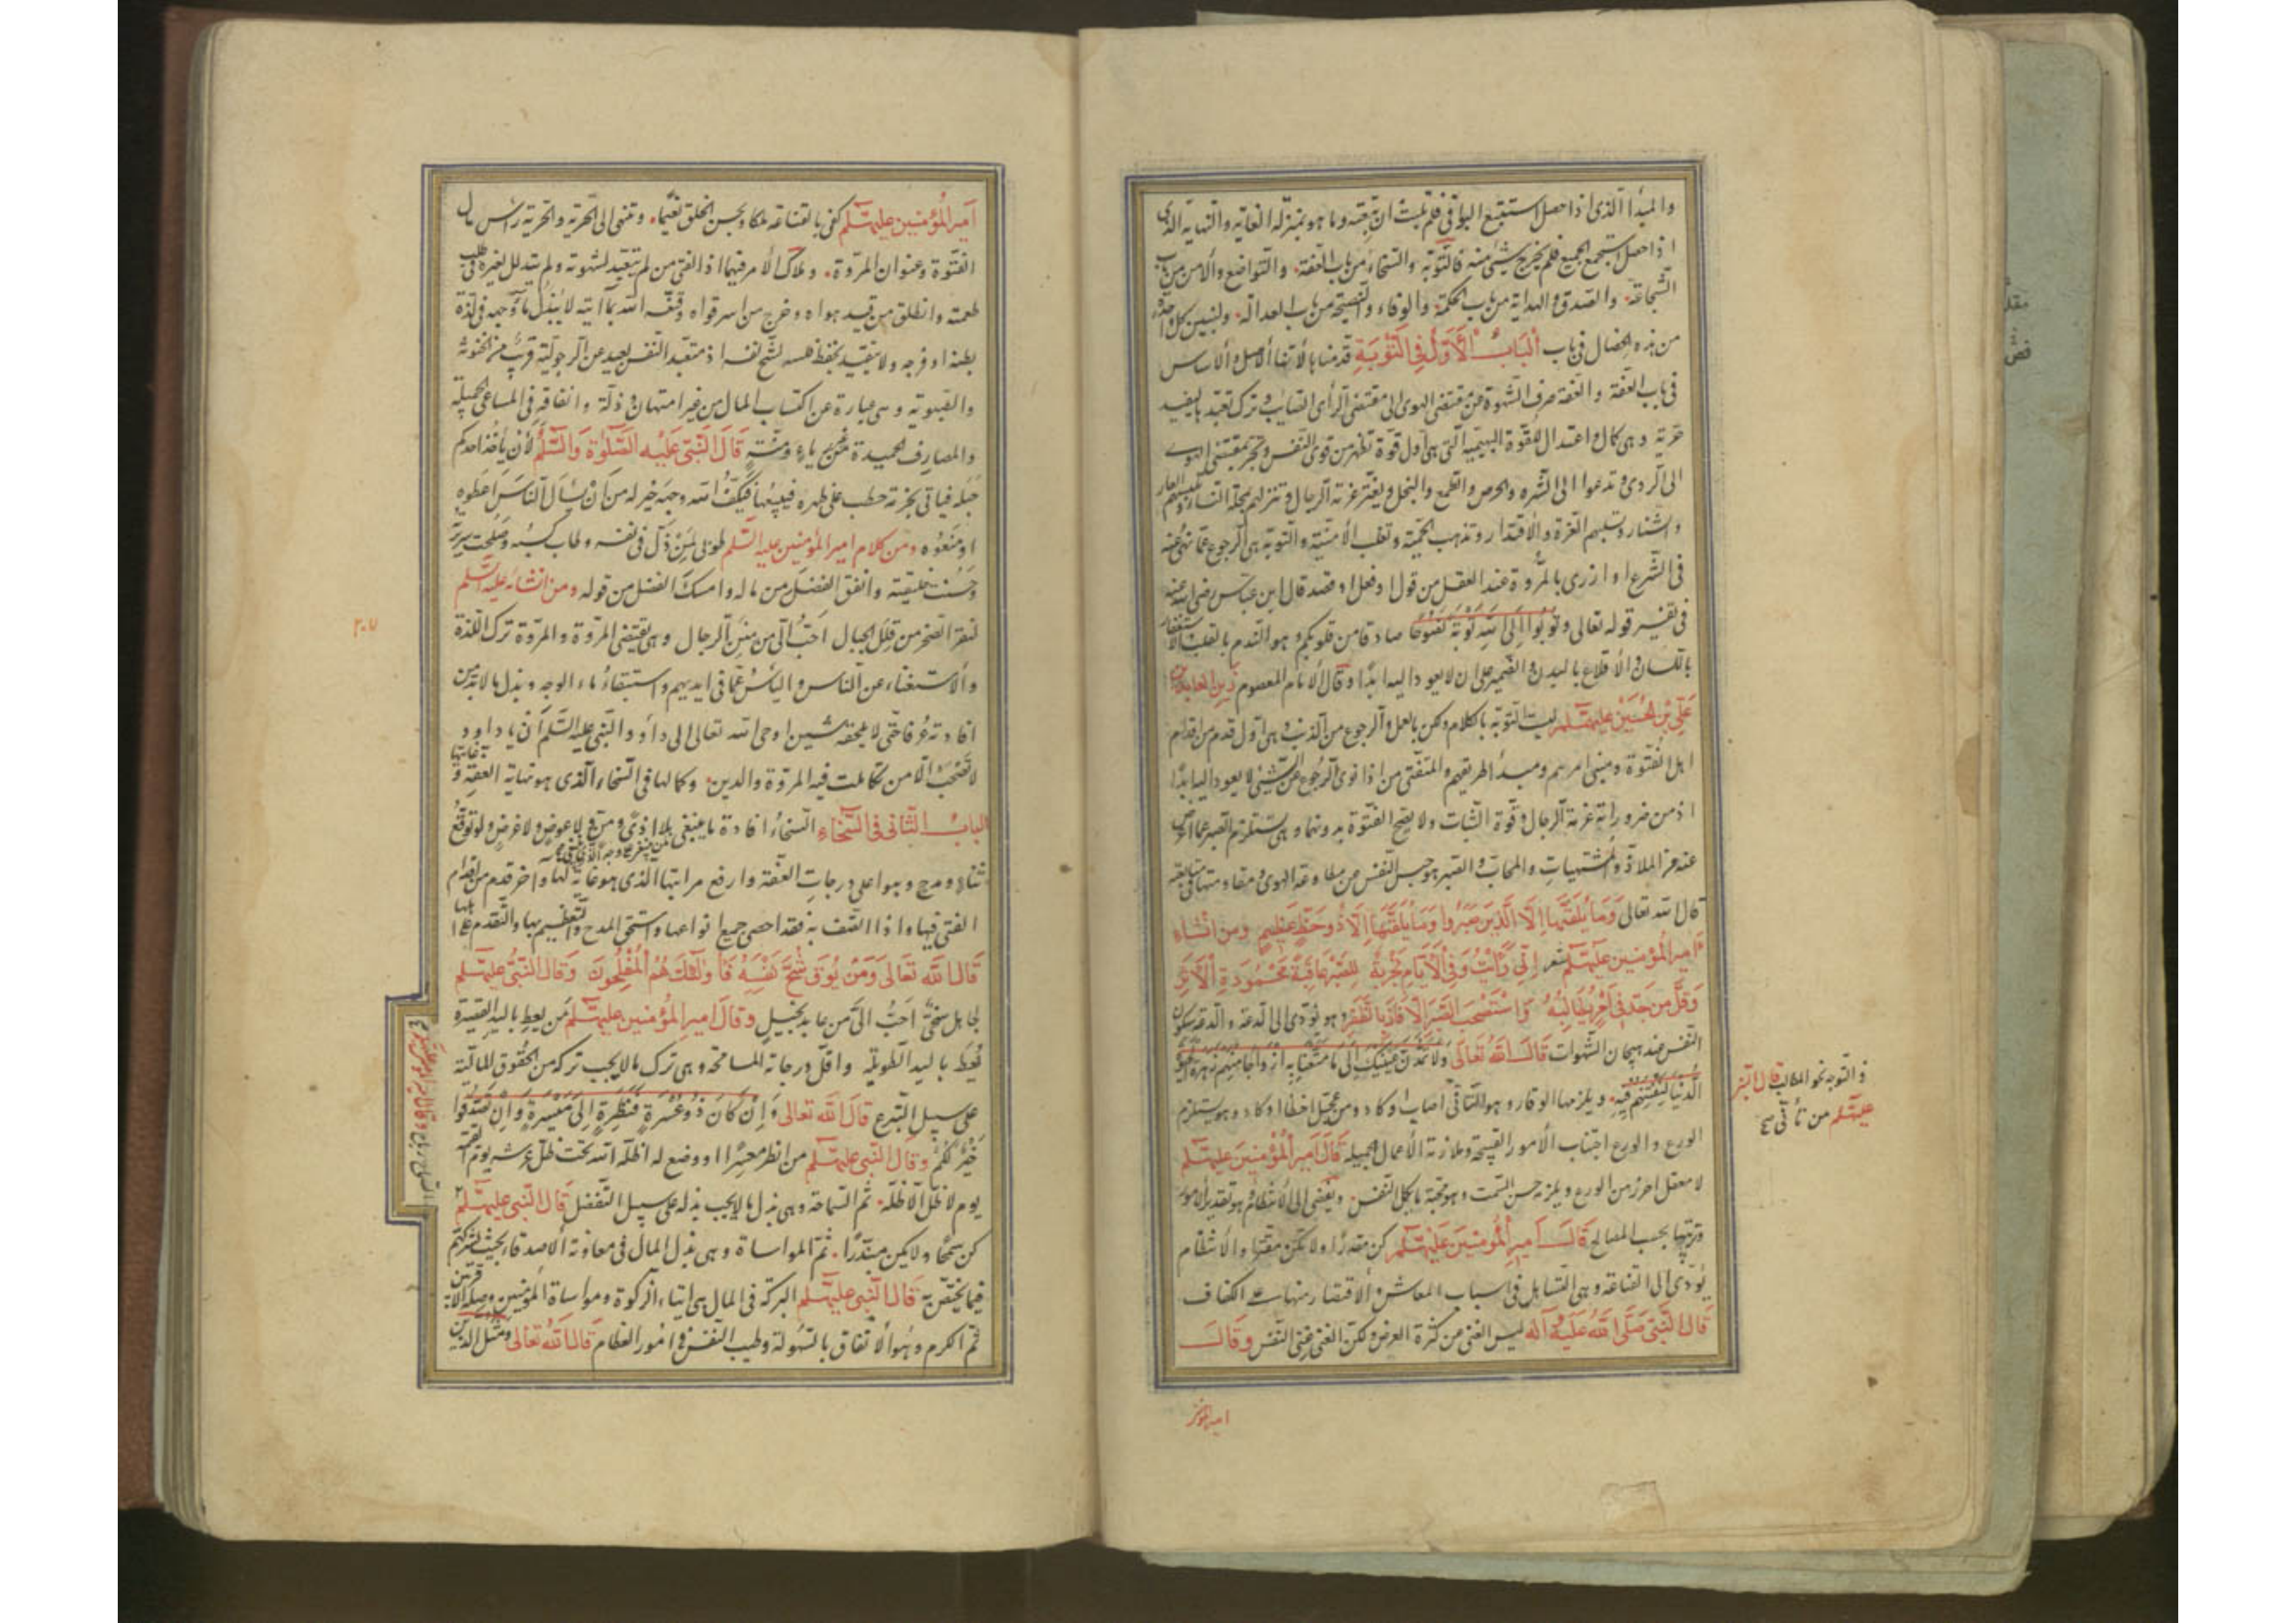 والمبدأ الذی اذا حصل استتبع البواقی فلم یلبث ان تتبعته وما هو بمنزلة الغایة والنهایة الذی
اذا حصل استجمع الجمیع فلم یخرج شیئ منه فالتوبة والسخاء من باب العفة والتواضع والامن من باب
الشجاعة والصدق والهدایة من باب الحکمة والوفاء والنصیحة من باب العدالة ولنبین کل واحدة
من هذه الخصال فی باب اَلبَابُ الاَوَّلُ فِی التَّوْبَةِ قدمناها لأنها الأصل والأساس
فی باب العفة والعفة صرف الشهوة عن مقتضی الهوی الی مقتضی الرأی الصایب وترک تعبدها لیفید
حریة وهی کمال واعتدال للقوة البهیمیة التی هی اول قوة تظهر من قوی النفس وتجر بمقتضی الهوی
الی الردی وتدعوا الی الشره والحرص والطمع والبخل ویفتر عزة الرجال وتنزلهم محلة النساء وتلبسهم العار
والشنار وتسلبهم العزة والاقتدار وتذهب الحمیة وتغلب الامنیة والتوبة هی الرجوع عما نهی عنه
فی الشرع او ازری بالمروة عند العقل من قول او فعل او قصد قال ابن عباس رضی الله عنه
فی تفسیر قوله تعالی وتُوبُوا اِلَی اللهِ تَوْبَةً نَصُوحًا صادقا من قلوبکم وهو الندم بالقلب والاستغفار
باللسان والاقلاع بالبدن والضمیر علی ان لا یعود الیه ابدًا وقال الامام المعصوم زین العابدین
عَلِیُّ بْنُ الحُسَیْنِ علیهما السلم لیست التوبة بالکلام ولکن بالعمل والرجوع من الذنب وهی اول قدم من اقدام
اهل الفتوة ومبنی امرهم ومبدأ طریقهم والمتفتی من اذا نوی الرجوع عن الشیئ لا یعود الیه ابدًا
اذ من ضروراته عزمة الرجال وقوة الثبات ولا یصح الفتوة بدونها وهی تستلزم الصبر عما
عنه من الملاذ والمشتهیات والمحاب والصبر هو حبس النفس من مطاوعة الهوی ومقاومتها فی متابعته
قال الله تعالی وَمَا یُلَقَّیهَا اِلَّا الَّذِینَ صَبَرُوا وَمَا یُلَقَّیهَا اِلَّا ذُو حَظٍّ عَظِیمٍ ومن انشاء
امیر المؤمنین علیه السلم شعر اِنِّی رَأَیْتُ وَفِی الاَیَّامِ تَجْرِبَةٌ لِلصَّبْرِ عَاقِبَةً مَحْمُودَةَ الاَثَرِ
وَقَلَّ مَن جَدَّ فِی اَمْرٍ یُطَالِبُهُ وَاسْتَصْحَبَ الصَّبْرَ اِلَّا فَازَ بِالظَّفَرِ وهو یؤدی الی الدعة والدعة سکون
النفس عند هیجان الشهوات قَالَ اللهُ تَعَالَی وَلَا تَمُدَّنَّ عَیْنَیْکَ اِلَی مَا مَتَّعْنَا بِهِ اَزْوَاجًا مِنْهُمْ زَهْرَةَ الحَیوة
الدُّنْیَا لِنَفْتِنَهُمْ فِیهِ ویلزمها الوقار وهو التأنی اصاب او کاد ومن عجل اخطأ او کاد وهو یستلزم
والتوجه نحو المطالب قال النبی
علیه السلم من تأنی صح
الورع والورع اجتناب الامور القبیحة وملازمة الاعمال الجمیلة قَالَ اَمِیرُ المُؤْمِنِینَ علیه السلم
لا معقل احرز من الورع ویلزمه حسن السمت وهو محبة ما یکمل النفس ویفضی الی الانتظام وهو تقدیر الامور
وترتیبها بحسب المصالح قَالَ اَمِیرُ المُؤْمِنِینَ عَلَیْهِ السلم کن مقدرًا ولا تکن مقترا والانتظام
یؤدی الی القناعة وهی التساهل فی اسباب المعاش والاقتصار منها علی الکفاف
قَالَ النَّبِیُّ صَلَّی اللهُ عَلَیْهِ وَآله لیس الغنی من کثرة العرض ولکن الغنی غنی النفس وقَالَ
امیر المؤمنین
اَمیر المُؤمنین علیه السلم کفی بالقناعة ملکا وبحسن الخلق نعیما وتنمی الی الحریة والحریة راس مال
الفتوة وعنوان المروة وملاک الامر فیهما اذ الفتی من لم یتعبد لشهوته ولم یتذلل لغیره فی طلب
طعمته وانطلق من قید هواه وخرج من اسر قواه وقنعه الله بما اتیه لا یبذل ماء وجهه فی لذة
بطنه او فرجه ولا یتقید بحفظ فلسه لشح نفسه اذ متعبد النفس بعید عن الرجولیة قریب من الخنوثة
والصبوة وهی عبارة عن اکتساب المال من غیر امتهان وذلة وانفاقه فی المساعی الجمیلة
والمصارف الحمیدة من غیر ریاء ومنّة قَالَ النَّبی عَلَیْه الصَّلوٰة وَالسَّلم لأن یأخذ احدکم
حبله فیأتی بحزمة حطب علی ظهره فیبیعها فیکف الله وجهه خیر له من ان یسأل الناس اعطوه
او منعوه ومن کلام امیر المؤمنین علیه السلم طوبی لمن ذل فی نفسه وطاب کسبه وصلحت سریرته
وحسنت خلیقته وانفق الفضل من ماله وامسک الفضل من قوله ومن انشائه علیه السلم
لنقل الصخر من قلل الجبال احب الی من منن الرجال وهی تقتضی المروة والمروة ترک اللذة
والاستغناء عن الناس والیأس عما فی ایدیهم واستبقاء ماء الوجه وبذل ما لا بد من
افادته عرفا حتی لا یلحقه شین اوحی الله تعالی الی داود النبی علیه السلم ان یا داود
لا تصحب الا من تکاملت فیه المروة والدین وکمالها فی السخاء الذی هو نهایة العفة وغایتها
الباب الثانی فی السخاء السخاء افادة ما ینبغی لمن ینبغی بلا اذی ومن ولا عوض ولا غرض ولو توقع
ثناء ومدح وهو اعلی درجات العفة وارفع مراتبها الذی هو غایة لها واخر قدم من اقدام
الفتی فیها واذا اتصف به فقد احصی جمیع انواعها واستحق المدح والتعظیم بها والتقدم علی اهلها
قَالَ اللهُ تَعَالَی وَمَنْ یُوقَ شُحَّ نَفْسِهِ فَاُولٰئِکَ هُمُ المُفْلِحُونَ وَقَالَ النَّبِیُّ علیه السلم
لجاهل سخی احب الی من عابد بخیل وقال امیر المؤمنین علیه السلم من یعط بالید القصیرة
یعط بالید الطویلة واقل درجاته المسامحة وهی ترک ما لا یجب ترکه من الحقوق المالیة
علی سبیل التبرع قال الله تعالی وَاِنْ کَانَ ذُو عُسْرَةٍ فَنَظِرَةٌ اِلَی مَیْسَرَةٍ وَاَنْ تَصَدَّقُوا
خَیْرٌ لَکُمْ وقَالَ النَّبی علیه السلم من انظر معسرًا او وضع له اظله الله تحت ظل عرشه یوم القیمة
یوم لا ظل الا ظله ثم السماحة وهی بذل ما لا یجب بذله علی سبیل التفضل قَالَ النَّبی علیه السلم
کن سمحًا ولا تکن مبذرًا ثم المواساة وهی بذل المال فی معاونة الاصدقاء بحیث یشرکهم
فیما یختص به قَالَ النَّبی علیه السلم البرکة فی المال هی ایتاء الزکوة ومواساة المؤمنین وصلة الاقربین
ثم الکرم وهو الانفاق بالسهولة وطیب النفس فی امور العظام قَالَ اللهُ تَعَالَی وَمَثَلُ الَّذِینَ
٢٠٧